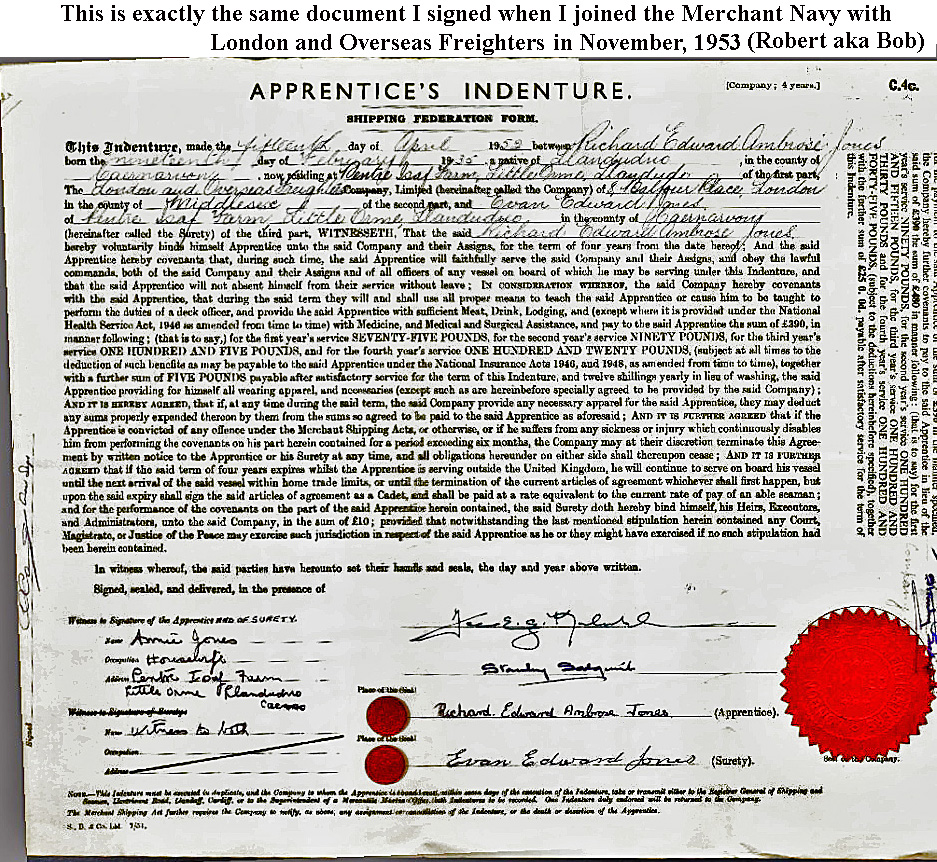 This is exactly the same document I signed when I joined the Merchant Navy with
London and Overseas Freighters in November, 1953 (Robert aka Bob)
APPRENTICE'S INDENTURE.
[Company; 4 years.]
C.4c.
SHIPPING FEDERATION FORM.
This Indenture, made the fifteenth day of April 1952 between Richard Edward Ambrose Jones
born the nineteenth day of February 1935 a native of Llandudno, in the county of
Caernarvon, now residing at Pentre Isaf Farm, Little Orme, Llandudno of the first part,
The London and Overseas Freighters Company, Limited (hereinafter called the Company) of 8 Balfour Place, London
in the county of Middlesex of the second part, and Evan Edward Jones
of Pentre Isaf Farm, Little Orme, Llandudno in the county of Caernarvon
(hereinafter called the Surety) of the third part, WITNESSETH, That the said Richard Edward Ambrose Jones
hereby voluntarily binds himself Apprentice unto the said Company and their Assigns, for the term of four years from the date hereof; And the said
Apprentice hereby covenants that, during such time, the said Apprentice will faithfully serve the said Company and their Assigns, and obey the lawful
commands, both of the said Company and their Assigns and of all officers of any vessel on board of which he may be serving under this Indenture, and
that the said Apprentice will not absent himself from their service without leave; IN CONSIDERATION WHEREOF, the said Company hereby covenants
with the said Apprentice, that during the said term they will and shall use all proper means to teach the said Apprentice or cause him to be taught to
perform the duties of a deck officer, and provide the said Apprentice with sufficient Meat, Drink, Lodging, and (except where it is provided under the National
Health Service Act, 1946 as amended from time to time) with Medicine, and Medical and Surgical Assistance, and pay to the said Apprentice the sum of £390, in
manner following; (that is to say,) for the first year's service SEVENTY-FIVE POUNDS, for the second year's service NINETY POUNDS, for the third year's
service ONE HUNDRED AND FIVE POUNDS, and for the fourth year's service ONE HUNDRED AND TWENTY POUNDS, (subject at all times to the
deduction of such benefits as may be payable to the said Apprentice under the National Insurance Acts 1946, and 1948, as amended from time to time), together
with a further sum of FIVE POUNDS payable after satisfactory service for the term of this Indenture, and twelve shillings yearly in lieu of washing, the said
Apprentice providing for himself all wearing apparel, and necessaries (except such as are hereinbefore specially agreed to be provided by the said Company);
AND IT IS HEREBY AGREED, that if, at any time during the said term, the said Company provide any necessary apparel for the said Apprentice, they may deduct
any sums properly expended thereon by them from the sums so agreed to be paid to the said Apprentice as aforesaid; AND IT IS FURTHER AGREED that if the
Apprentice is convicted of any offence under the Merchant Shipping Acts, or otherwise, or if he suffers from any sickness or injury which continuously disables
him from performing the covenants on his part herein contained for a period exceeding six months, the Company may at their discretion terminate this Agree-
ment by written notice to the Apprentice or his Surety at any time, and all obligations hereunder on either side shall thereupon cease; AND IT IS FURTHER
AGREED that if the said term of four years expires whilst the Apprentice is serving outside the United Kingdom, he will continue to serve on board his vessel
until the next arrival of the said vessel within home trade limits, or until the termination of the current articles of agreement whichever shall first happen, but
upon the said expiry shall sign the said articles of agreement as a Cadet, and shall be paid at a rate equivalent to the current rate of pay of an able seaman;
and for the performance of the covenants on the part of the said Apprentice herein contained, the said Surety doth hereby bind himself, his Heirs, Executors,
and Administrators, unto the said Company, in the sum of £10; provided that notwithstanding the last mentioned stipulation herein contained any Court,
Magistrate, or Justice of the Peace may exercise such jurisdiction in respect of the said Apprentice as he or they might have exercised if no such stipulation had
been herein contained.
In witness whereof, the said parties have hereunto set their hands and seals, the day and year above written.
Signed, sealed, and delivered, in the presence of
Witness to Signature of the Apprentice AND OF SURETY.
Name Annie Jones
Occupation Housewife
Address Pentre Isaf Farm
Little Orme Llandudno
Caerns
Witness to Signature of Surety
Name Witness to both
Occupation
Address
Place of the Seal
Richard Edward Ambrose Jones (Apprentice).
Place of the Seal
Evan Edward Jones (Surety).
Seal of the Company.
the Company hereby further covenants to pay to the said Apprentice in lieu of the
said sum of £390 the sum of £480 in manner following: (that is to say) for the first
year's service NINETY POUNDS, for the second year's service ONE HUNDRED
AND FIFTEEN POUNDS, for the third year's service ONE HUNDRED AND
THIRTY POUNDS and for the fourth year's service ONE HUNDRED AND
FORTY-FIVE POUNDS, (subject to the deductions hereinbefore specified), together
with the further sum of £25 0. 0d. payable after satisfactory service for the term of
this Indenture.
NOTE.—This Indenture must be executed in duplicate, and the Company to whom the Apprentice is bound must, within seven days of the execution of the Indenture, take or transmit either to the Registrar General of Shipping and
Seamen, Llantrisant Road, Llandaff, Cardiff, or to the Superintendent of a Mercantile Marine Office, both Indentures to be recorded. One Indenture duly endorsed will be returned to the Company.
The Merchant Shipping Act further requires the Company to notify, as above, any assignment or cancellation of the Indenture, or the death or desertion of the Apprentice.
S., D. & Co. Ltd. 7/51.